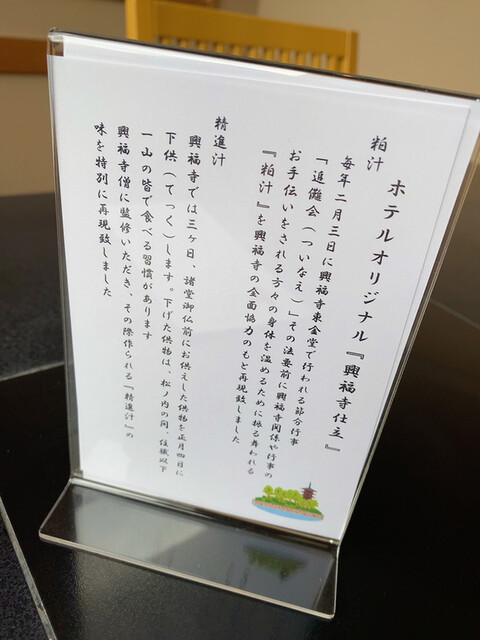 ホテルオリジナル『興福寺仕立』
粕汁
毎年二月三日に興福寺東金堂で行われる節分行事
「追儺会（ついなえ）」その法要前に興福寺関係や行事の
お手伝いをされる方々の身体を温めるために振る舞われる
『粕汁』を興福寺の全面協力のもと再現致しました
精進汁
興福寺では三ヶ日、諸堂御仏前にお供えした供物を正月四日に
下供（てっく）します。下げた供物は、松ノ内の間、住職以下
一山の皆で食べる習慣があります
興福寺僧に監修いただき、その際作られる『精進汁』の
味を特別に再現致しました